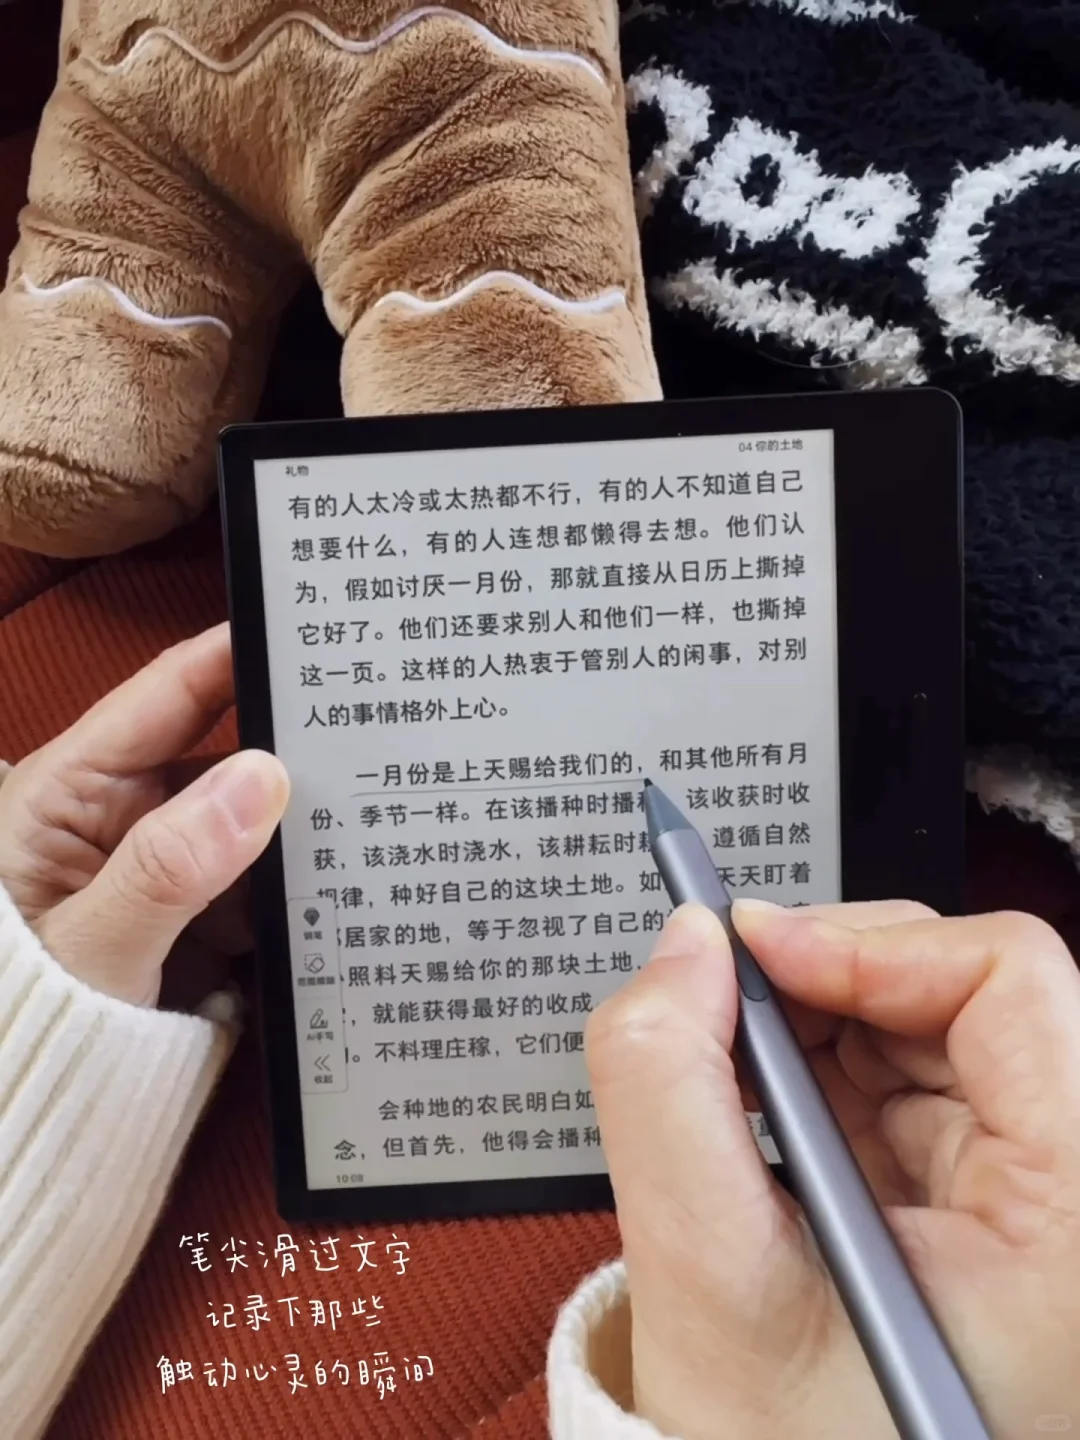 礼物
04 你的土地
有的人太冷或太热都不行，有的人不知道自己
想要什么，有的人连想都懒得去想。他们认
为，假如讨厌一月份，那就直接从日历上撕掉
它好了。他们还要求别人和他们一样，也撕掉
这一页。这样的人热衷于管别人的闲事，对别
人的事情格外上心。
一月份是上天赐给我们的，和其他所有月
份、季节一样。在该播种时播种，该收获时收
获，该浇水时浇水，该耕耘时 遵循自然
规律，种好自己的这块土地。如 天天盯着
居家的地，等于忽视了自己的
照料天赐给你的那块土地，
，就能获得最好的收成
。不料理庄稼，它们便
会种地的农民明白如
念，但首先，他得会播种
钢笔
范围擦除
AI手写
收起
10:09
笔尖滑过文字
记录下那些
触动心灵的瞬间